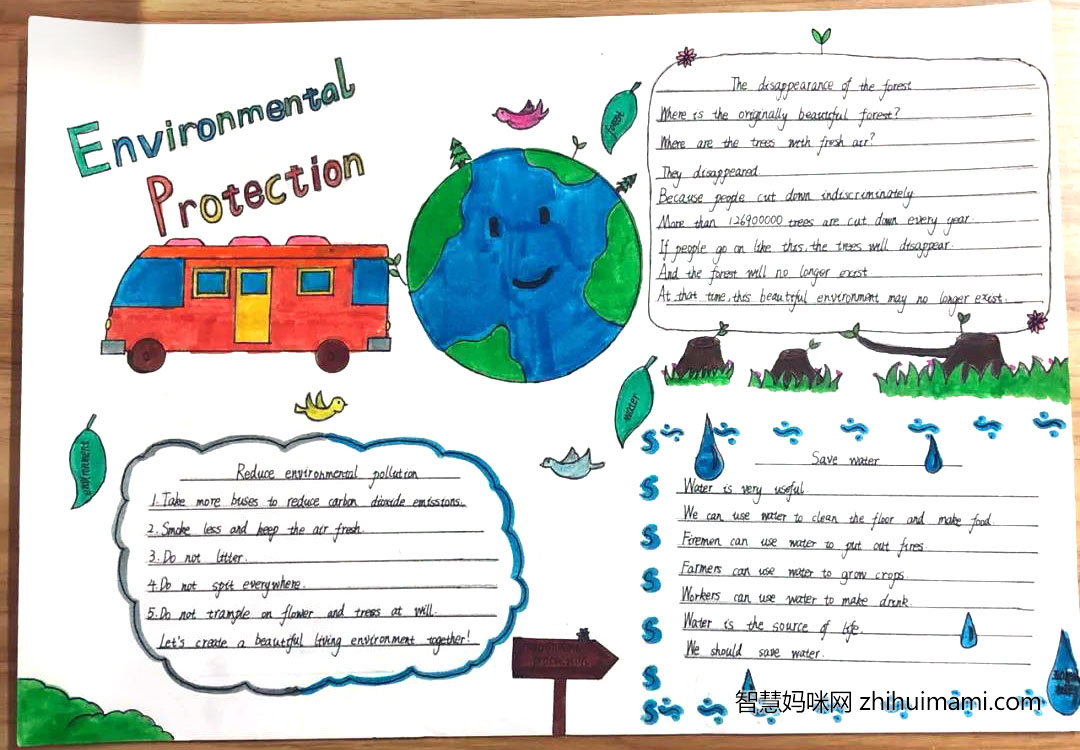 Environmental
Protection
forest
The disappearance of the forest
Where is the originally beautiful forest?
Where are the trees with fresh air?
They disappeared
Because people cut down indiscriminately
More than 126900000 trees are cut down every year.
If people go on like this, the trees will disappear.
And the forest will no longer exist
At that time, this beautiful environment may no longer exist.
water
environment
Reduce environmental pollution
1. Take more buses to reduce carbon dioxide emissions.
2. Smoke less and keep the air fresh.
3. Do not litter.
4. Do not spit everywhere.
5. Do not trample on flower and trees at will.
Let's create a beautiful living environment together!
Save water
Water is very useful.
We can use water to clean the floor and make food.
Firemen can use water to put out fires.
Farmers can use water to grow crops
Workers can use water to make drink.
Water is the source of life.
We should save water.
protection
智慧妈咪网 zhihuimami.com